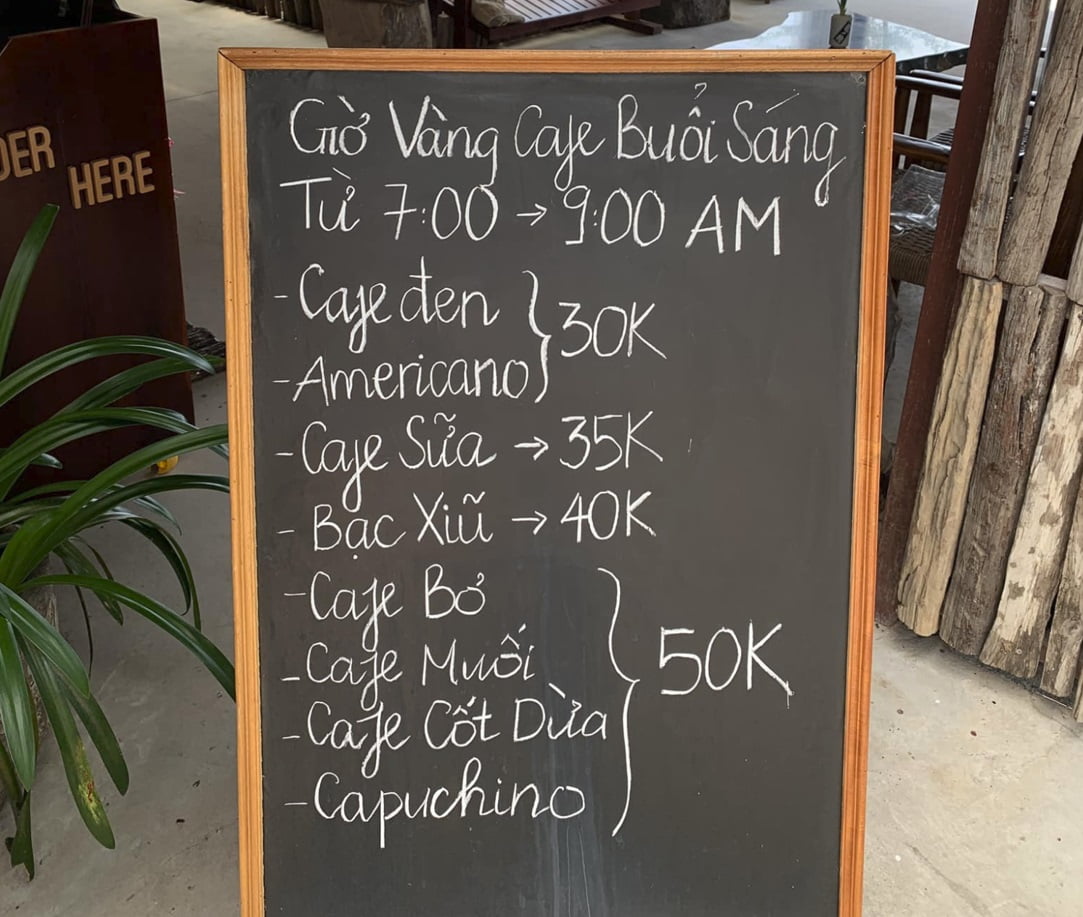 DER
HERE
Giờ Vàng Cafe Buổi Sáng
Từ 7:00 → 9:00 AM
- Cafe đen
- Americano } 30K
- Cafe Sữa → 35K
- Bạc Xiũ → 40K
- Cafe Bơ
- Cafe Muối
- Cafe Cốt Dừa
- Capuchino } 50K